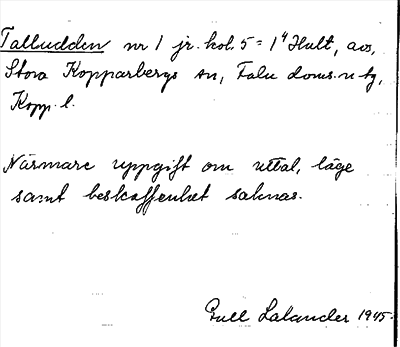 Talludden nr 1 jr. kol. 5 = 1⁴ Hult, avs,
Stora Kopparbergs sn, Falu doms. n tg,
Kopp. l.
Närmare uppgift om uttal, läge
samt beskaffenhet saknas.
Gull Lalander 1945.